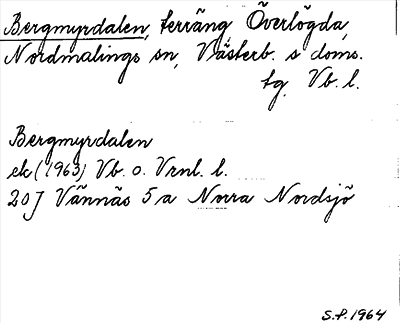 Bergmyrdalen, terräng, Överlögda,
Nordmalings sn, Västerb. s doms.
tg, Vb. l.
Bergmyrdalen
ek (1963) Vb. o. Vrnl. l.
20J Vännäs 5a Norra Nordsjö
S.P. 1964